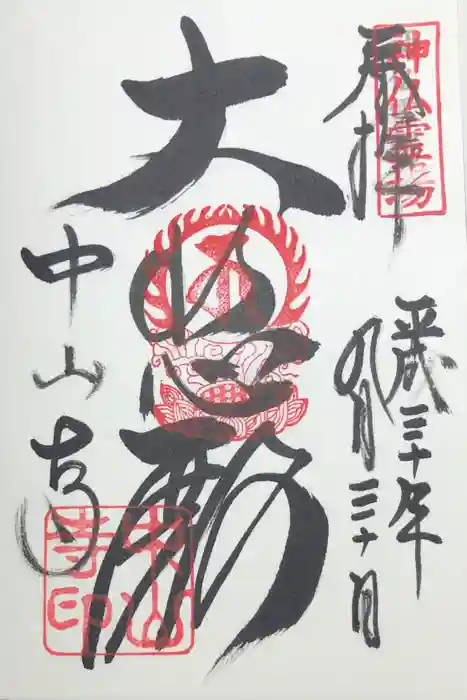 奉拝
神仏霊場
平成三十年
九月三十日
大悲殿
中山寺
中山
寺印